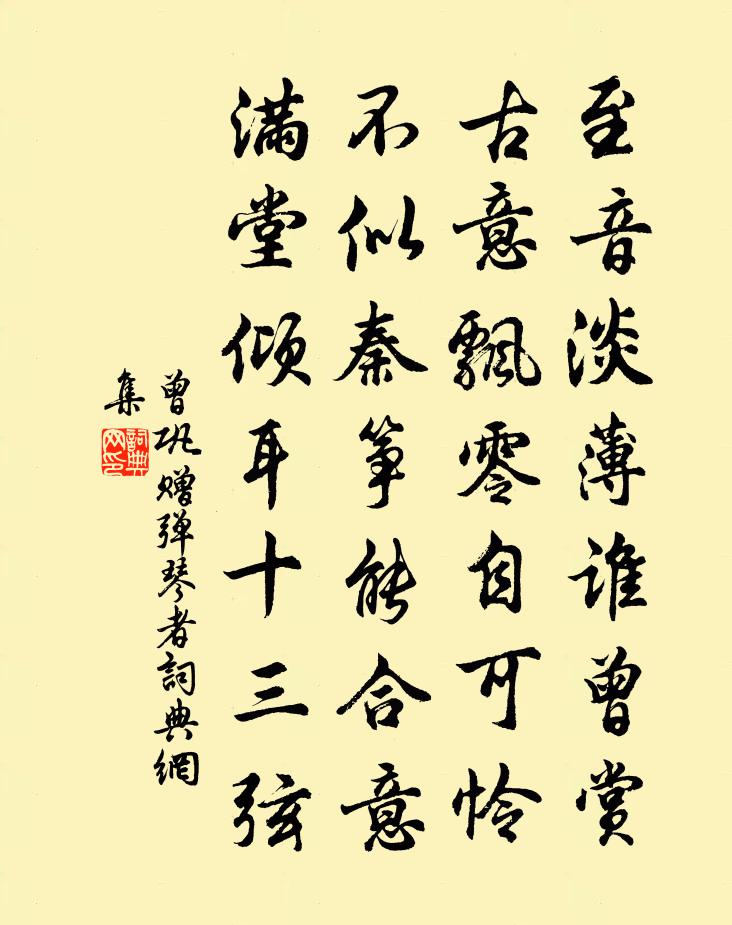 至音淡薄谁曾赏
古意飘零自可怜
不似秦筝能合意
满堂倾耳十三弦
曾巩赠弹琴者詞典網
集
詞典
网印